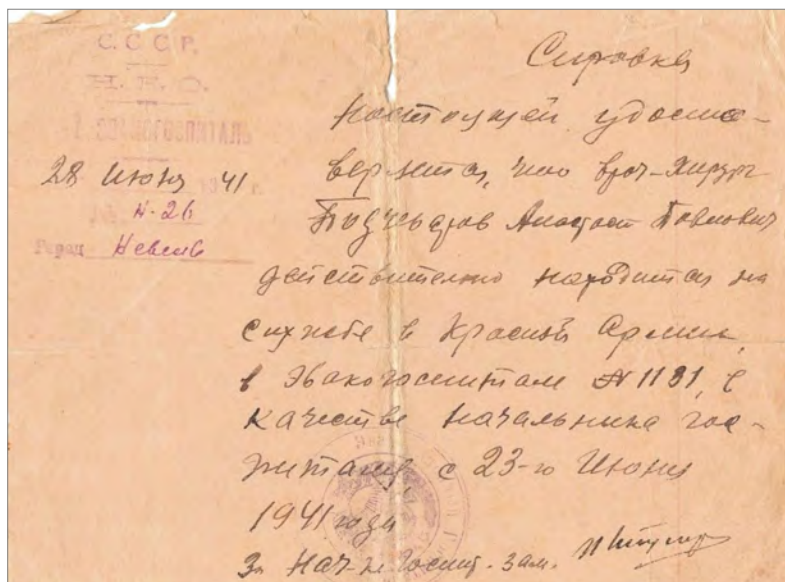 С. С. С. Р.
Н. К. О.
ЭВАКОГОСПИТАЛЬ
28 Июня 1941 г.
№ Н-26
Город Невель
Справка
Настоящей удосто-
веряется, что врач-хирург
Анастас Павлович
действительно находится на
службе в Красной Армии,
в Эвакогоспитале № 1181, в
качестве начальника гос-
питаля с 23-го Июня
1941 года
За Нач-ка Госпит. зам.